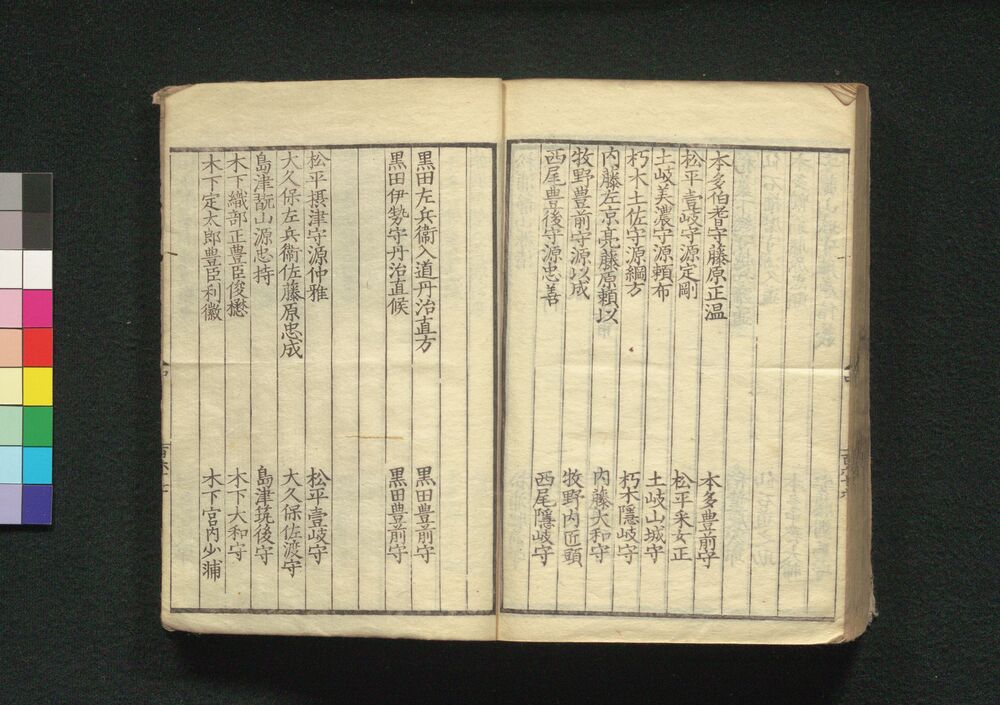 本多伯耆守藤原正温　本多豊前守
松平壹岐守源定剛　松平采女正
土岐美濃守源頼布　土岐山城守
朽木土佐守源綱方　朽木隱岐守
内藤左京亮藤原頼以　内藤大和守
牧野豊前守源以成　牧野内匠頭
西尾豊後守源忠善　西尾隱岐守
黒田左兵衞入道丹治直方　黒田豊前守
黒田伊勢守丹治直候　黒田豊前守
松平摂津守源仲雅　松平壹岐守
大久保左兵衞佐藤原忠成　大久保佐渡守
島津翫山源忠持　島津筑後守
木下織部正豊臣俊懋　木下大和守
木下定太郎豊臣利徽　木下宮内少輔